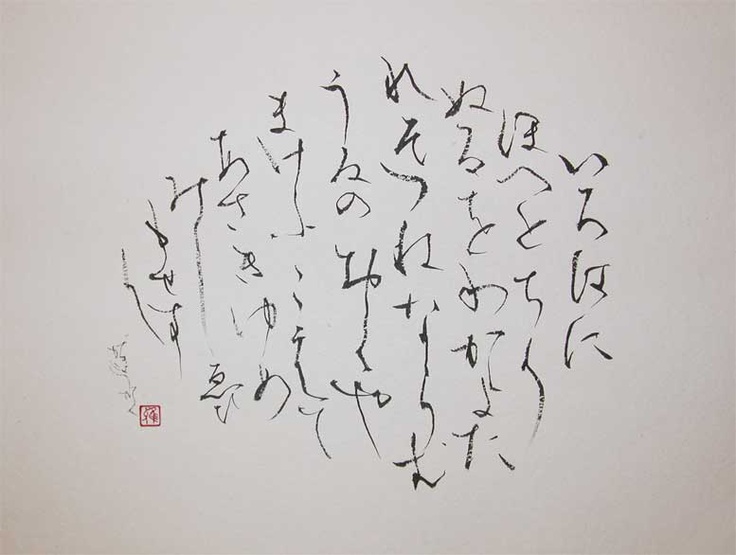 いろはに
ほへとちり
ぬるをわかよた
れそつねならむ
うゐのおくや
まけふこえて
あさきゆめ
みしゑひ
もせす